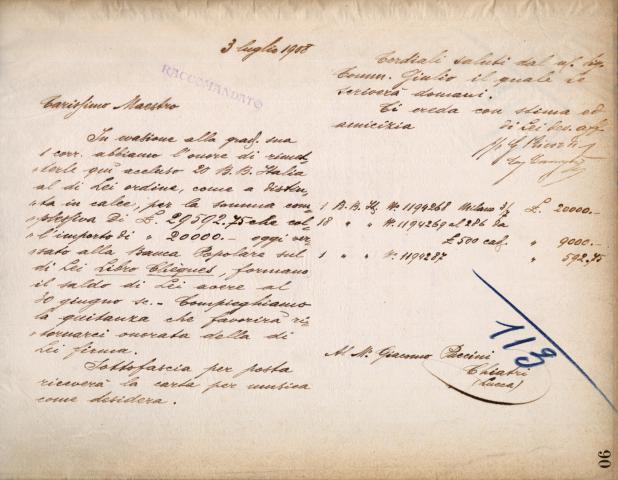 3 luglio 1908
RACCOMANDATO
Carissimo Maestro
In evasione alla grad. sua
1 corr. abbiamo l'onore di rimet-
terle qui accluso 20 B.B. Italia
al di Lei ordine, come a distin-
ta in calce, per la somma com-
plessiva di £. 29592.75 che col-
l'importo di " 20000.- oggi ver-
sato alla Banca Popolare sul
di Lei Libro Chèques, formano
il saldo di Lei avere al
30 giugno sc. - Compieghiamo
la quitanza che favorirà ri-
tornarci onorata della di
Lei firma.
Sottofascia per posta
riceverà la carta per musica
come desidera.
Cordiali saluti dal n/ Sig.
Comm. Giulio il quale Le
scriverà domani.
Ci creda con stima ed
amicizia
di Lei
1 B.B. It. N. 1194268 Milano 3/7 £. 20000.-
18 " " N. 1194269 al 286 da
£ 500 cad. " 9000.-
1 " " N. 1194287 " 592.75
Al M. Giacomo Puccini
Chiatri
(Lucca)
1/3
90